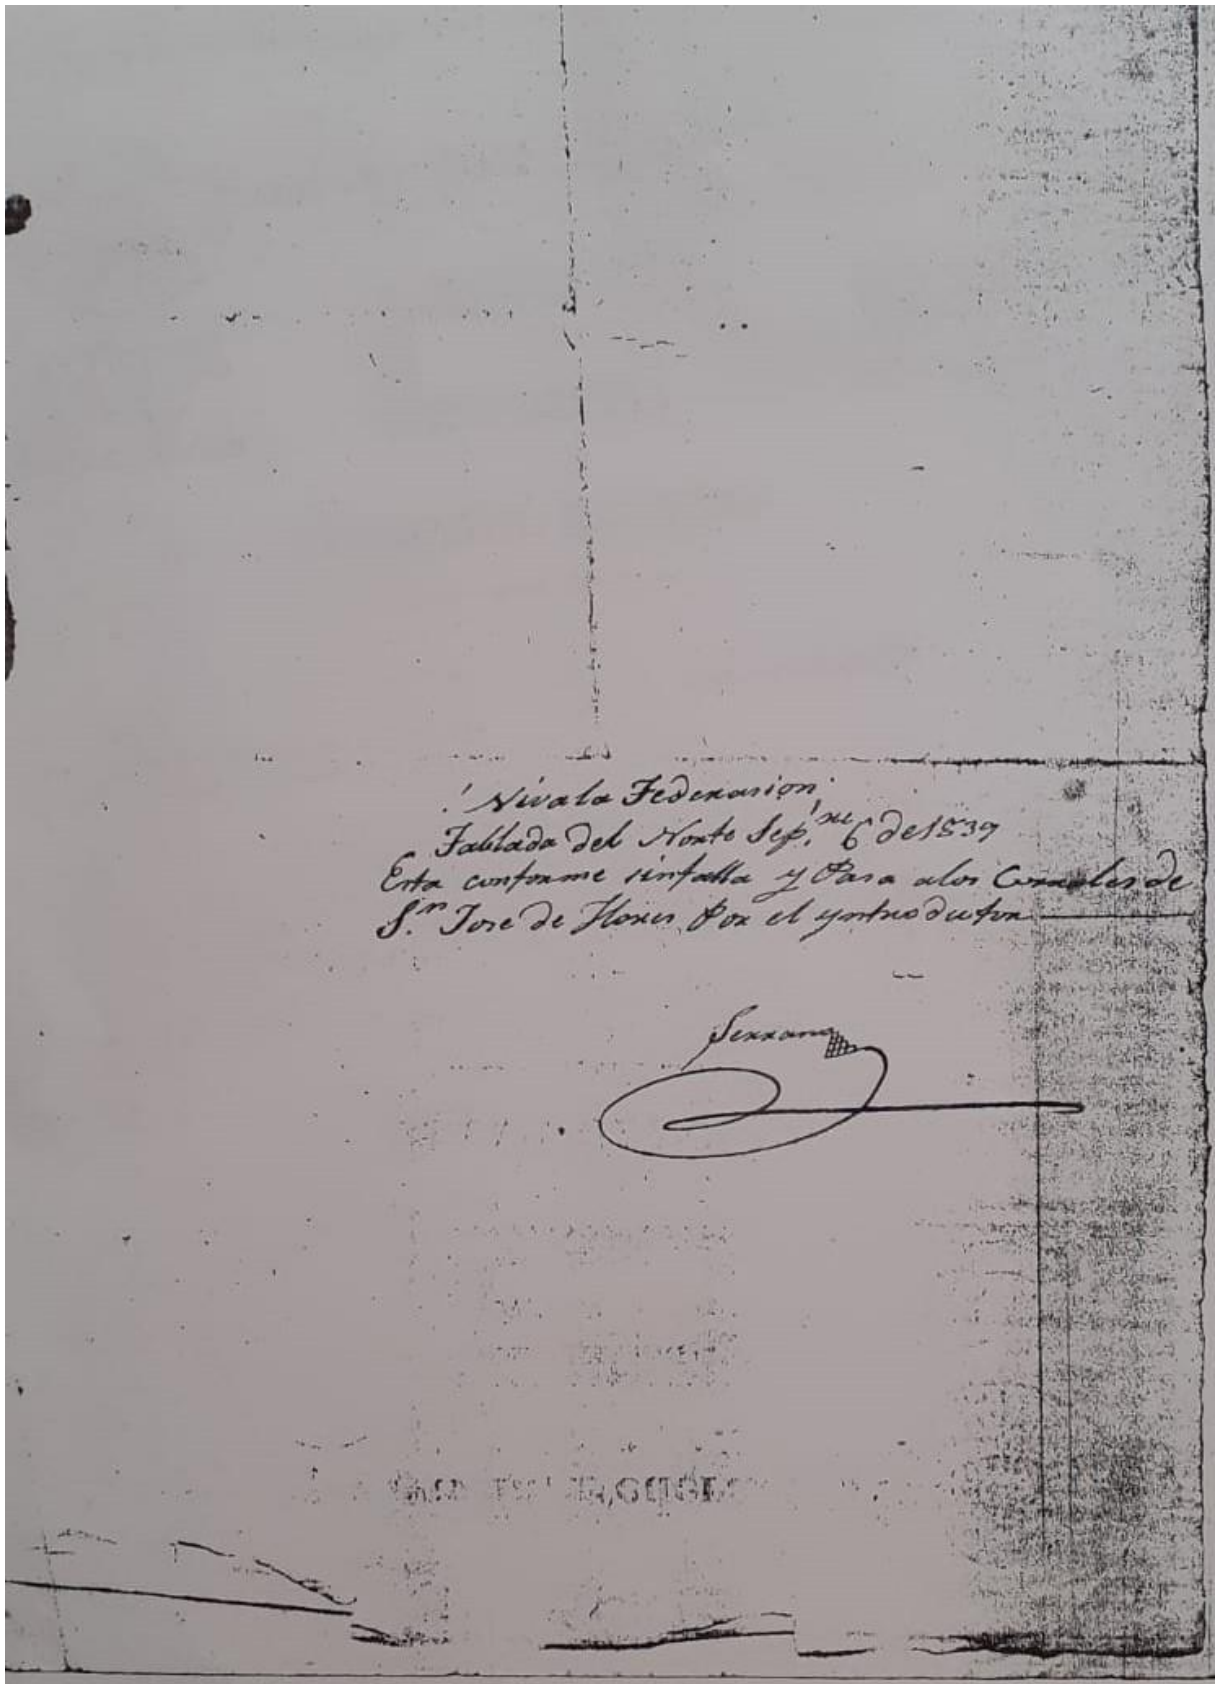 ¡Viva la Federasion!
Tablada del Norte Sep.re 6 de 1839
Esta conforme sinfalla y Pasa alos Corrales de
S.n Jose de Flores Por el yntrodutor
Serrano